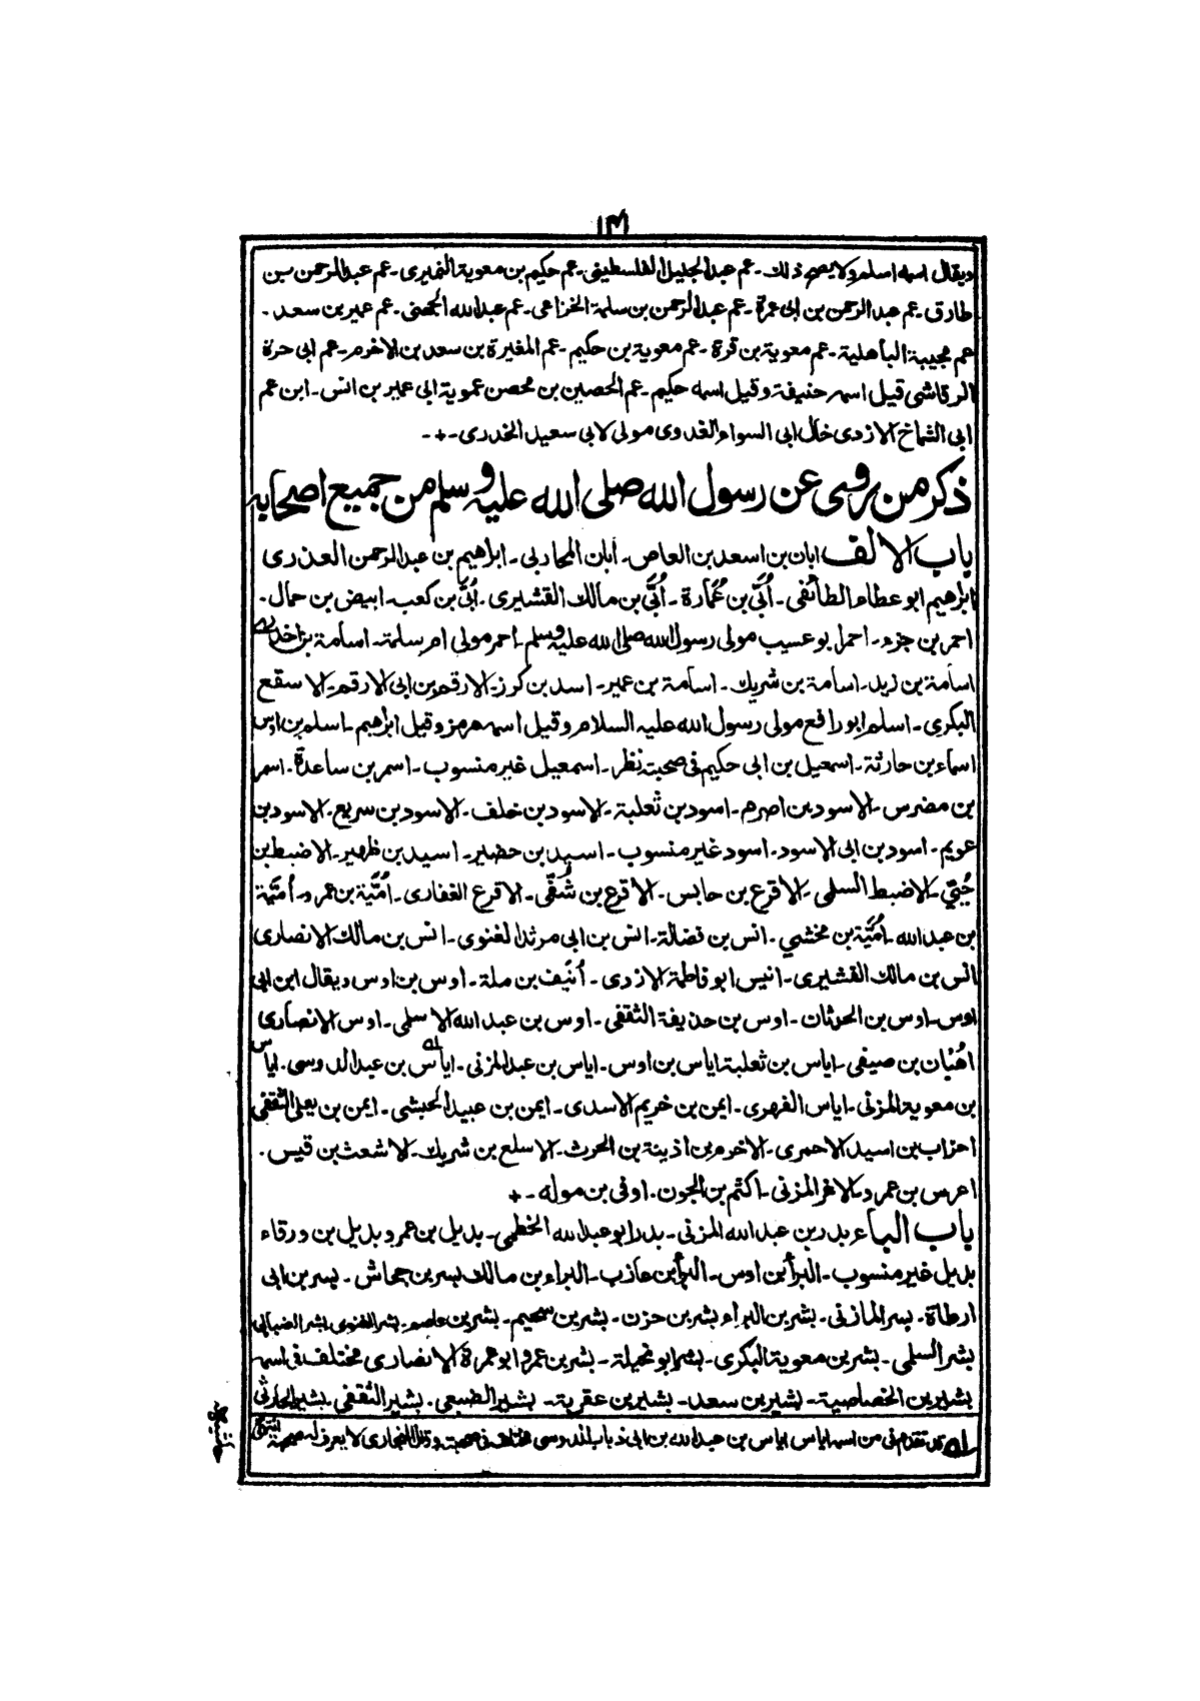 ١٣
ويقال اسمه اسلم ولا يصح ذلك۔ عم عبد الجليل الفلسطيني۔ عم حكيم بن معوية النميرى۔ عم عبد الرحمن بن
طارق۔ عم عبد الرحمن بن ابى عمرة۔ عم عبد الرحمن بن سلمة الخزاعى۔ عم عبد الله الجهنى۔ عم عمير بن سعد۔
عم مجيبة الباهلية۔ عم معوية بن قرة۔ عم معوية بن حكيم۔ عم المغيرة بن سعد بن الاخرم۔ عم ابى حرة
الرقاشى قيل اسمه حنيفة وقيل اسمه حكيم۔ عم الحصين بن محصن عمومة ابى عمير بن انس۔ ابن عم
ابى الشماخ الازدى خال ابى السوار العدوى مولى لابى سعيد الخدرى۔+۔
ذكر من روى عن رسول الله صلى الله عليه وسلم من جميع اصحابه
باب الالف ابان بن اسعد بن العاص۔ ابان المحاربى۔ ابراهيم بن عبد الرحمن العذرى
ابرهيم ابو عطاء الطائفى۔ اُبَىّ بن عُمَارة۔ اُبَىّ بن مالك القشيرى۔ اُبَىّ بن كعب۔ ابيض بن حمال۔
احمر بن جزء۔ احمر ابو عسيب مولى رسول الله صلى الله عليه وسلم۔ احمر مولى ام سلمة۔ اسامة بن اخدرى
اسامة بن زيد۔ اسامة بن شريك۔ اسامة بن عمير۔ اسد بن كرز۔ الارقم بن ابى الارقم۔ الاسقع
البكرى۔ اسلم ابو رافع مولى رسول الله عليه السلام وقيل اسمه هرمز وقيل ابرهيم۔ اسلم بن اوس
اسماء بن حارثة۔ اسمعيل بن ابى حكيم فى صحبته نظر۔ اسمعيل غير منسوب۔ اسمر بن ساعدة۔ اسمر
بن مضرس۔ الاسود بن اصرم۔ اسود بن ثعلبة۔ الاسود بن خلف۔ الاسود بن سريع۔ الاسود بن
عويم۔ اسود بن ابى الاسود۔ اسود غير منسوب۔ اسيد بن حضير۔ اسيد بن ظهير۔ الاضبط بن
حُيَىّ۔ الاضبط السلمى۔ الاقرع بن حابس۔ الاقرع بن شُفَىّ۔ الاقرع الغفارى۔ اُمَيّة بن عمرو۔ اُمَيّة
بن عبد الله۔ اُمَيّة بن مخشي۔ انس بن فضالة۔ انس بن ابى مرثد الغنوى۔ انس بن مالك الانصارى
انس بن مالك القشيرى۔ انيس ابو فاطمة الازدى۔ اُنَيف بن ملة۔ اوس بن اوس ويقال ابن ابى
اوس۔ اوس بن الحدثان۔ اوس بن حذيفة الثقفى۔ اوس بن عبد الله الاسلمى۔ اوس الانصارى
اُهْبَان بن صيفى۔ اياس بن ثعلبة اياس بن اوس۔ اياس بن عبد المزنى۔ اياس ؎ بن عبد الدوسى۔ اياس
بن معوية المزنى۔ اياس الفهرى۔ ايمن بن خريم الاسدى۔ ايمن بن عبيد الحبشى۔ ايمن بن يعلى الثقفى
احزاب بن اسيد الاحمرى۔ الاخرم بن اذينة بن الحرث۔ الاسلع بن شريك۔ الاشعث بن قيس۔
اعرس بن عمرو۔ الاغر المزنى۔ اكثم بن الجون۔ اوفى بن موله۔+
باب الباء بدر بن عبد الله المزنى۔ بدر ابو عبد الله الخطمى۔ بديل بن عمرو بديل بن ورقاء
بديل غير منسوب۔ البرأ بن اوس۔ البرأ بن عازب۔ البراء بن مالك بسر بن جحاش۔ بسر بن ابى
ارطاة۔ بسر المازنى۔ بشر بن البراء بشر بن حزن۔ بشر بن سحيم۔ بشر بن عاصم۔ بشر الغنوى بشر الضبابى
بشر السلمى۔ بشر بن معوية البكرى۔ بشر ابو نحيلة۔ بشر بن عمرو ابو عمرة الانصارى مختلف فى اسمه
بشير بن الخصاصية۔ بشير بن سعد۔ بشير بن عقربة۔ بشير الضبيعى۔ بشير الثقفى۔ بشير الحارثى
؎ قد تقدم فى من اسمه اياس اياس بن عبد الله بن ابى ذباب الدوسى مختلف فى صحبته وقال البخارى لا يعرف له صحبة انتهى